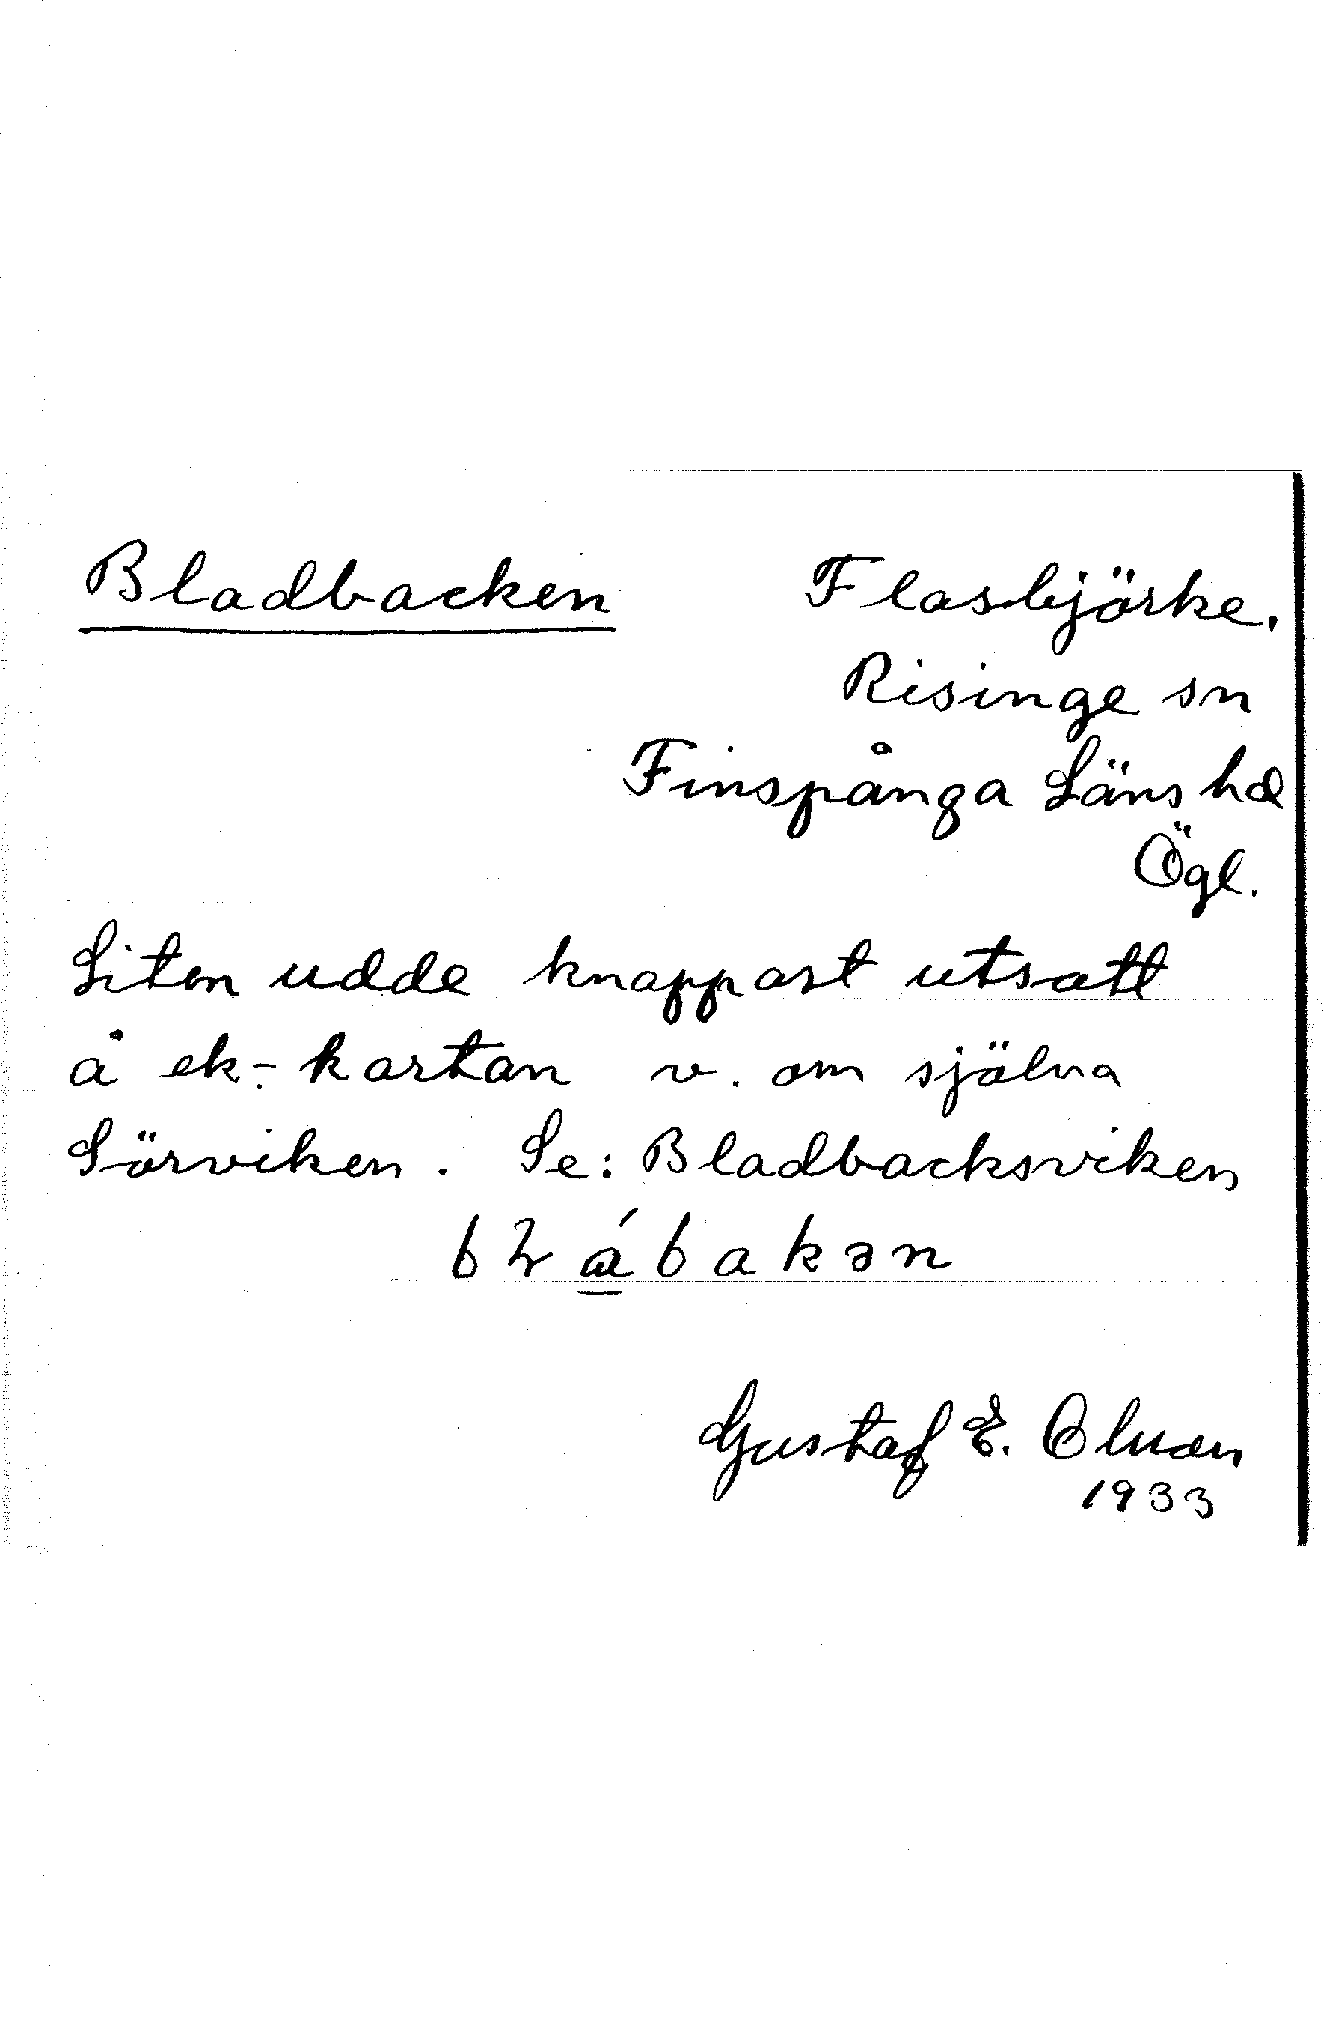 Bladbacken Flasbjörke.
Risinge sn
Finspånga Läns hd
Ögl.
Liten udde knappast utsatt
å ek.-kartan v. om själva
Sörviken. Se: Bladbacksviken
Gustaf E.
1933